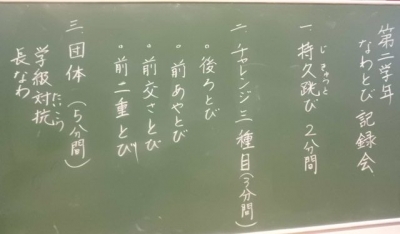 第二学年
なわとび記録会
一 持久跳び 2分間
じきゅうと
二 チャレンジ三種目(3分間)
・後ろとび
・前あやとび
・前交さとび
・前二重とび
三 団体 (5分間)
学級対抗
たいこう
長なわ